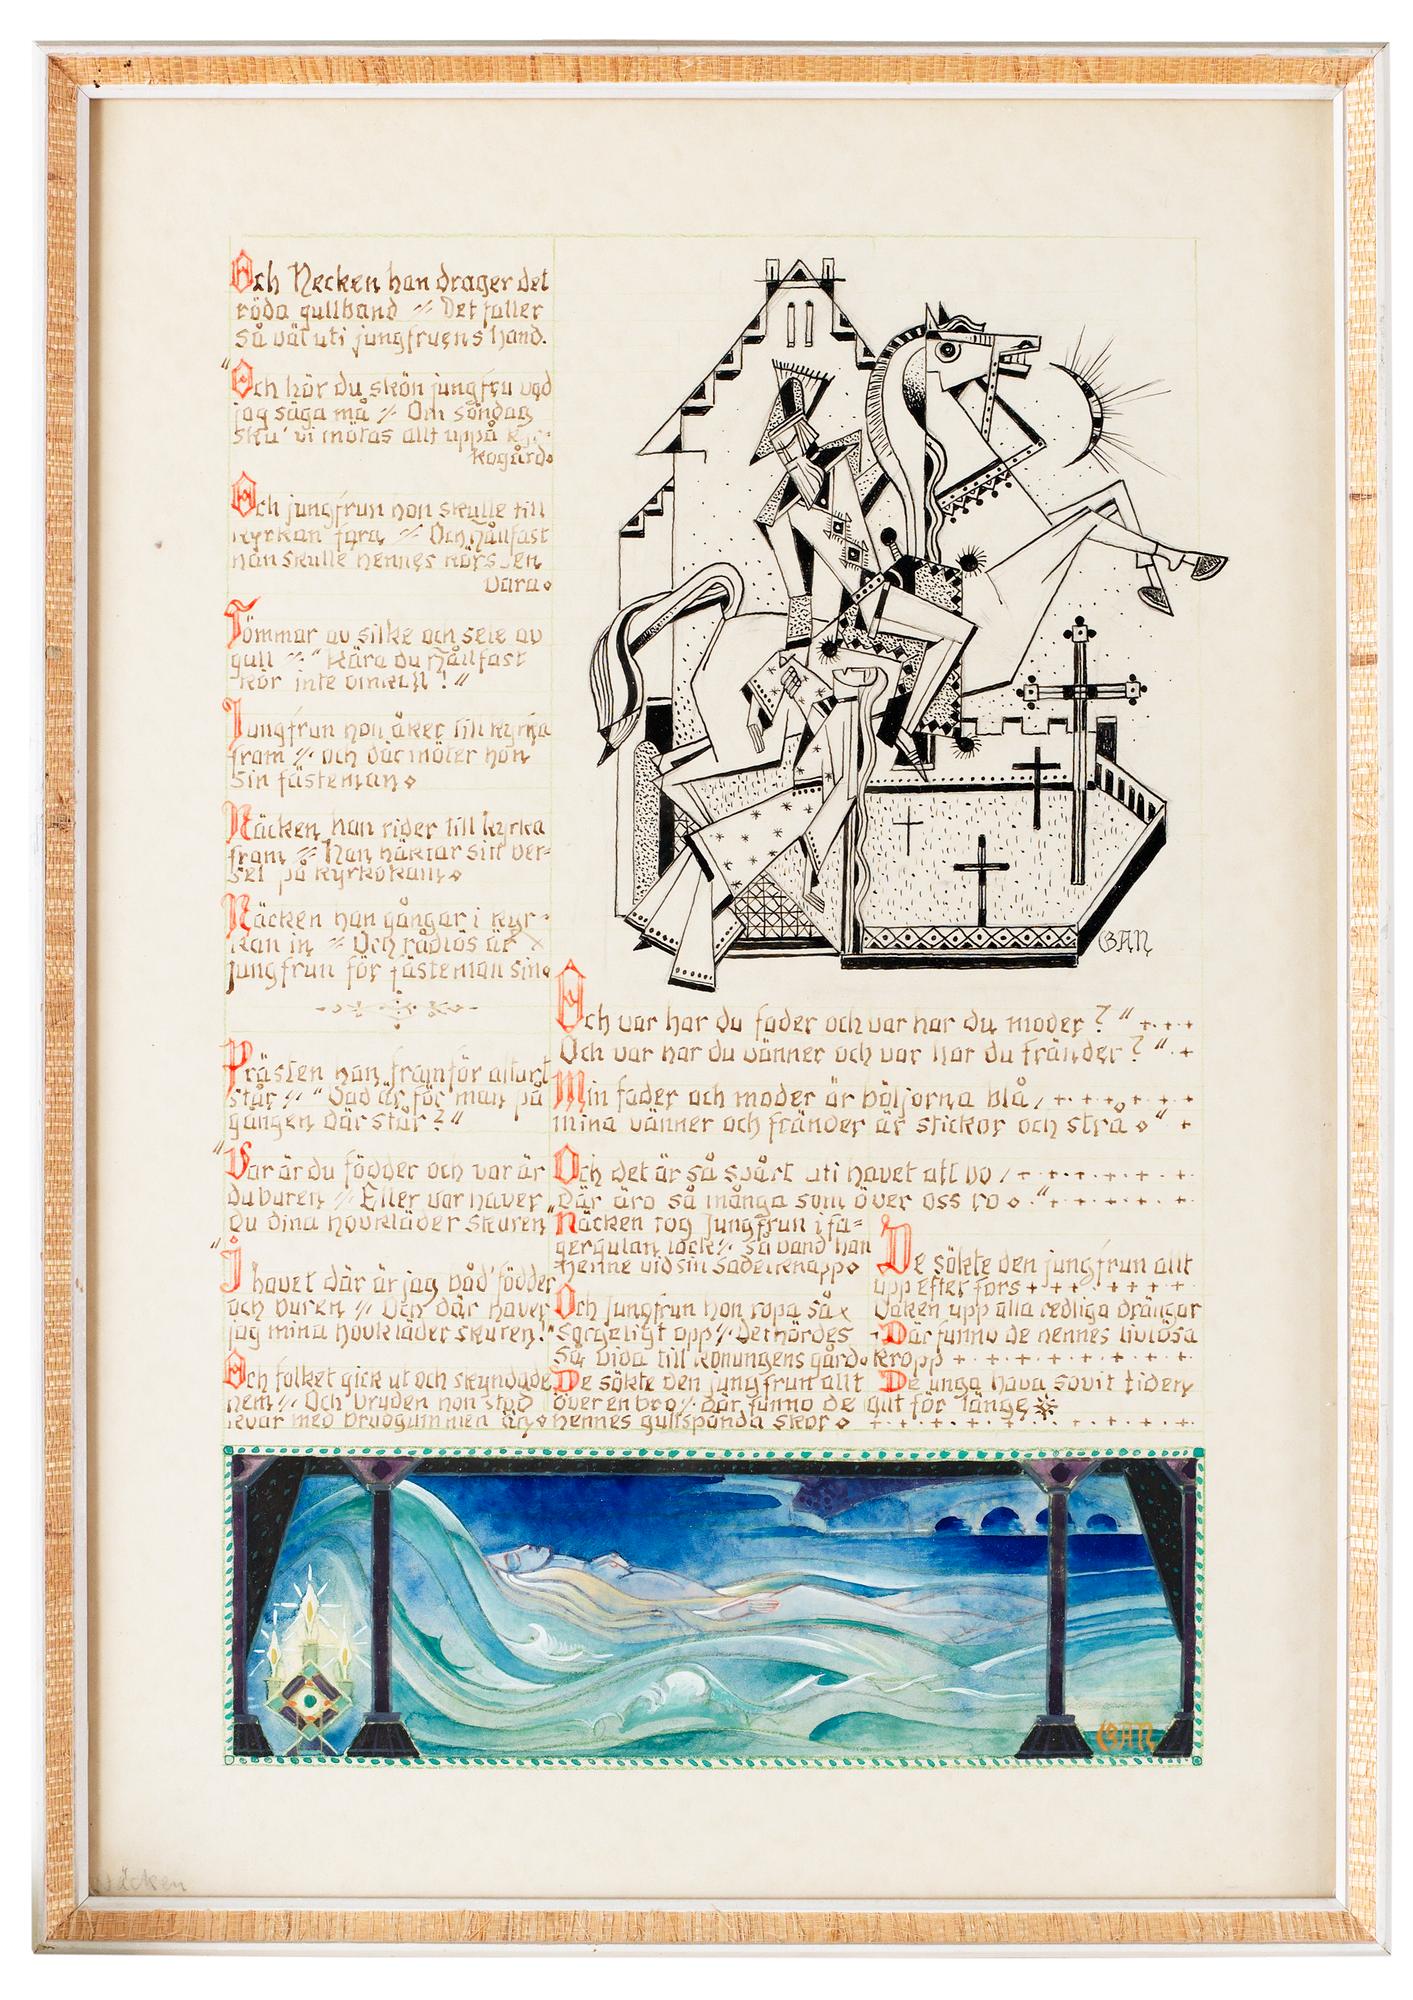 Och Necken han drager det
röda gullband // Det faller
så väl uti jungfruens hand.
"Och hör du skön jungfru vad
jag säga må // Om söndag
sku' vi mötas allt uppå kyr-
kogård
Och jungfrun hon skulle till
kyrkan fara // Och Hållfast
han skulle hennes körsven
vara
Tömmar av silke och sele av
gull // "Kära du Hållfast
kör inte omkull!"
Jungfrun hon åker till kyrka
fram // och där möter hon
sin fästeman
Näcken han rider till kyrka
fram // Han häktar sitt bet-
sel på kyrkokam
Näcken han gångar i kyr-
kan in // Och rådlös är
jungfrun för fästeman sin
Prästen han framför altart
står // "Vad är för man på
gången där står?"
"Var är du födder och var är
du buren // Eller var haver
du dina hovkläder skuren"
"I havet där är jag båd' födder
och buren // Och där haver
jag mina hovkläder skuren!"
Och folket gick ut och skyndade
hem // Och bruden hon stod
kvar med brudgummen än
Och var har du fader och var har du moder?"
Och var har du vänner och var har du fränder?"
Min fader och moder är böljorna blå,
mina vänner och fränder är stickor och strå"
Och det är så svårt uti havet att bo,
Där äro så många som över oss ro"
Näcken tog jungfrun i fa-
gergulan lock // Så band han
henne vid sin sadelknapp
Och Jungfrun hon ropa så
sorgeligt opp // Det hördes
så vida till konungens gård
De sökte den jungfrun allt
över en bro // där funno de
hennes gullspända skor
De sökte den jungfrun allt
upp efter fors
Vaken upp alla redliga drängar
Där funno de hennes livlösa
kropp
De unga hava sovit tiden
gut för länge
GAN
GAN
Näcken